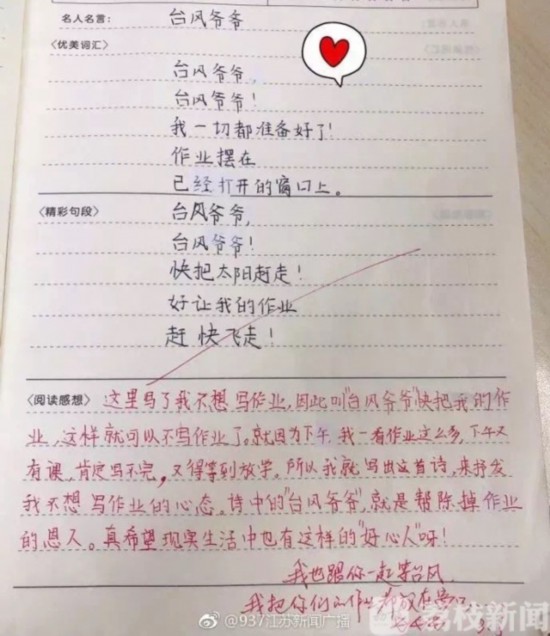 名人名言： 台风爷爷
〈优美词汇〉
台风爷爷，
台风爷爷！
我一切都准备好了！
作业摆在
已经打开的窗口上。
〈精彩句段〉 台风爷爷，
台风爷爷！
快把太阳赶走！
好让我的作业
赶快飞走！
〈阅读感想〉 这里写了我不想写作业，因此叫"台风爷爷"快把我的作
业，这样就可以不写作业了。就因为下午，我一看作业这么多，下午又
有课，肯定写不完，又得等到放学，所以我就写出这首诗，来抒发
我不想写作业的心态。诗中的"台风爷爷"，就是帮除掉作业
的恩人。真希望现实生活中也有这样的"好心人"呀！
我也跟你一起等台风
我把你们的作业都放在窗口
@937江苏新闻广播
荔枝新闻